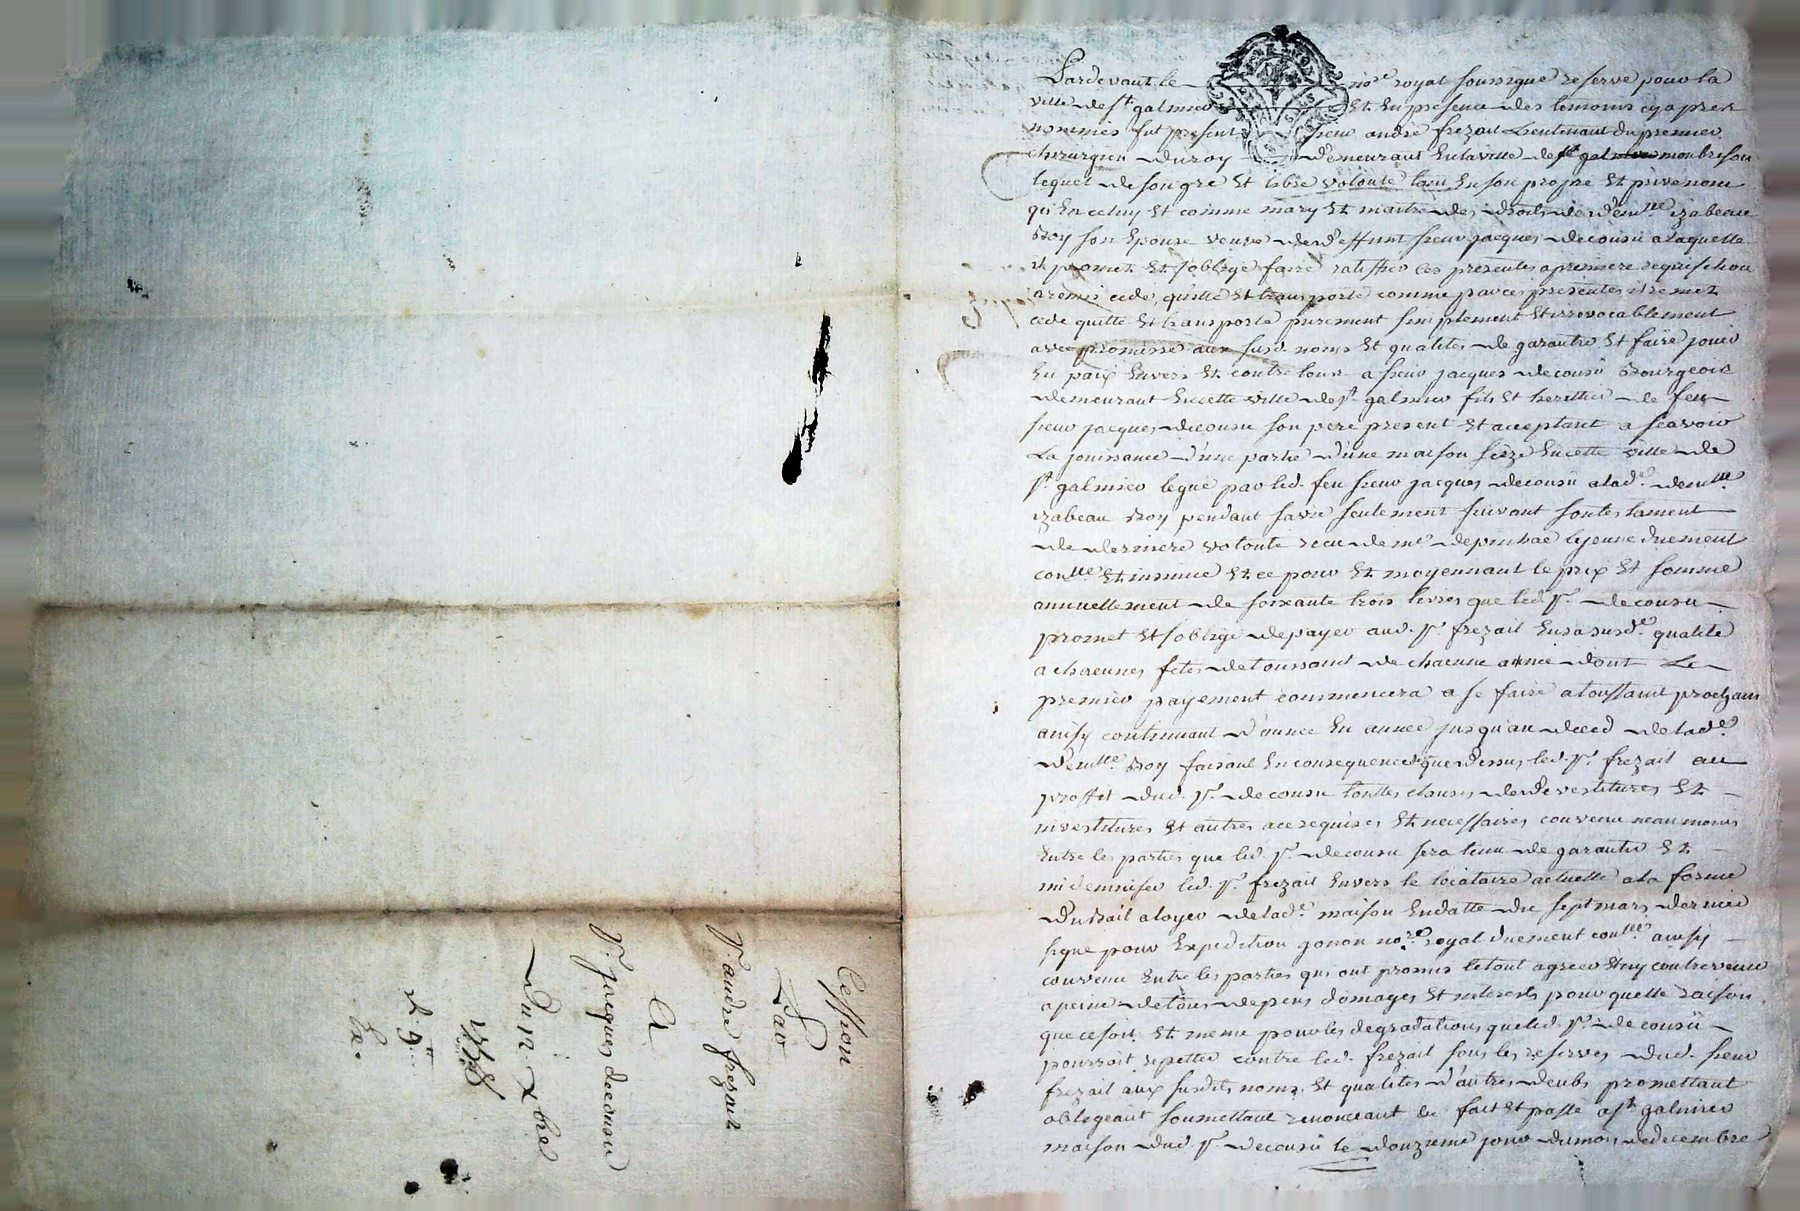 Pardevant le no.re royal soussigné reservé pour la
ville de st galmier Et En presence des temoins cy apres
nommés fut present sieur andré frezait Lieutenant du premier
chirurgien du roy demeurant En la ville de montbrison
lequel de son gré Et libre volonté tant En son propre Et privé nom
qu'En celuy Et comme mary Et maitre des droits de dem.lle izabeau
Roy son Epouse veuve de deffunt sieur jacques decousu a laquelle
il promet Et s'oblige faire ratiffier ces presentes a premiere requisition
a remis cedé, quitté Et transporté comme par ces presentes il remet
cede quitte Et transporte purement simplement Et irrevocablement
avec promesse aux susd. noms Et qualités de garantir Et faire jouir
En paix Envers Et contre tous a sieur jacques decousu Bourgeois
demeurant En cette ville de st. galmier fils Et heritier de feu
sieur jacques decousu son pere present Et acceptant a scavoir
La jouissance d'une partie d'une maison size En cette ville de
st. galmier legué par led. feu sieur jacques decousu a lad.e dem.lle
izabeau Roy pendant sa vie seulement suivant son testament
de derniere volonté recu de me. le jeune duement
con.llé Et insinué Et ce pour Et moyennant le prix Et somme
annuellement de soixante trois livres que led. sr. decousu
promet Et s'oblige de payer aud. sr. frezait En sa susd.e qualité
a chacunes fetes de toussaint de chacune année dont Le
premier payement commencera a se faire a toussaint prochain
ainsy continuant d'année En année jusqu'au deced de lad.e
dem.lle Roy faisant En consequence que dessus led. sr. frezait au
proffit dud. sr. decousu touttes clauses de devestitures Et
investitures Et autres a ce requises Et necessaires convenu neanmoins
Entre les parties que led. sr. decousu sera tenu de garantir Et
indemniser led. sr. frezait Envers le locataire actuelle a la forme
du Bail a loyer de lad.e maison En datte du sept mars dernier
signé pour Expedition gonon no.re royal duement con.llé ainsy
convenu Entre les parties qui ont promis le tout agreer Et ny contrevenir
a peine de tous depens domages Et interests pour quelle raison
que ce soit Et meme pour les degradations que led. sr. decousu
pourroit repetter contre led. frezait sous les reserves dud. sieur
frezait aux susdits noms Et qualités d'autres deubs promettant
obligeant soumettant renonceant &c fait Et passé a st galmier
maison dud. sr decousu le douzieme jour du mois de decembre
Cession
Par
Sr. andré frezait
A
Sr. jacques decousu
Du 12 xbre